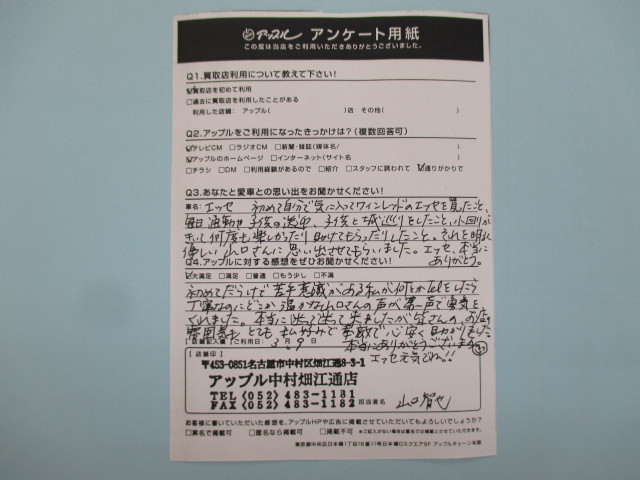 アップル アンケート用紙
この度は当店をご利用いただきありがとうございました。
Q1.買取店利用について教えて下さい!
☑買取店を初めて利用
□過去に買取店を利用したことがある
利用した店舗: アップル( )店 その他( )
Q2.アップルをご利用になったきっかけは?(複数回答可)
☑テレビCM □ラジオCM □新聞・雑誌(媒体名/ )
☑アップルのホームページ □インターネット(サイト名 )
□チラシ □DM □利用経験があるので □紹介 □スタッフに誘われて ☑通りがかりで
Q3.あなたと愛車との思い出をお聞かせください!
車名: エッセ 初めて自分で気に入ってワインレッドのエッセを買たこと、
毎日通勤や子供の送迎、子供と城巡りをしたこと、小回りが
きいて何度も楽しかったり助けてもらったりしたこと。それを明るく
優しい山口さんに思い出させてもらいました。エッセ、本当に
ありがとう。
Q4.アップルに対する感想をぜひお聞かせください!
☑大満足 □満足 □普通 □もう少し □不満
初めてだらけで苦手意識がある私が何とか電話をしたら
丁寧なのにどこか温かな山口さんの声が第一声で勇気を
くれました。本当に迷って迷って来ましたが皆さんの、お店の
雰囲気も とても 私好みで 素敵で 心安く 助かりました
本当にありがとうございます
エッセ元気でね!!
(店舗記入欄) ご利用日: 3月9日
【店舗印】
〒453-0851名古屋市中村区畑江通8-3-1
アップル中村畑江通店
TEL〈052〉483-1131
FAX〈052〉483-1182
担当者名 山口智也
お客様に書いていただいた感想を、アップルHPや広告に掲載させていただいてもよろしいでしょうか?
□実名で掲載可 □匿名なら掲載可 □掲載不可 ※ご記入がない場合は匿名での掲載とさせていただきます。
東京都中央区日本橋1丁目16番11号日本橋DスクエアBF アップルチェーン本部